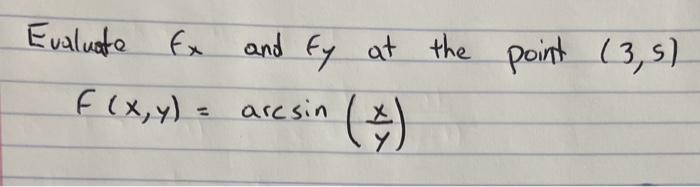 Evaluate fx and fy at the point (3,5)
f(x,y) = arcsin (x/y)